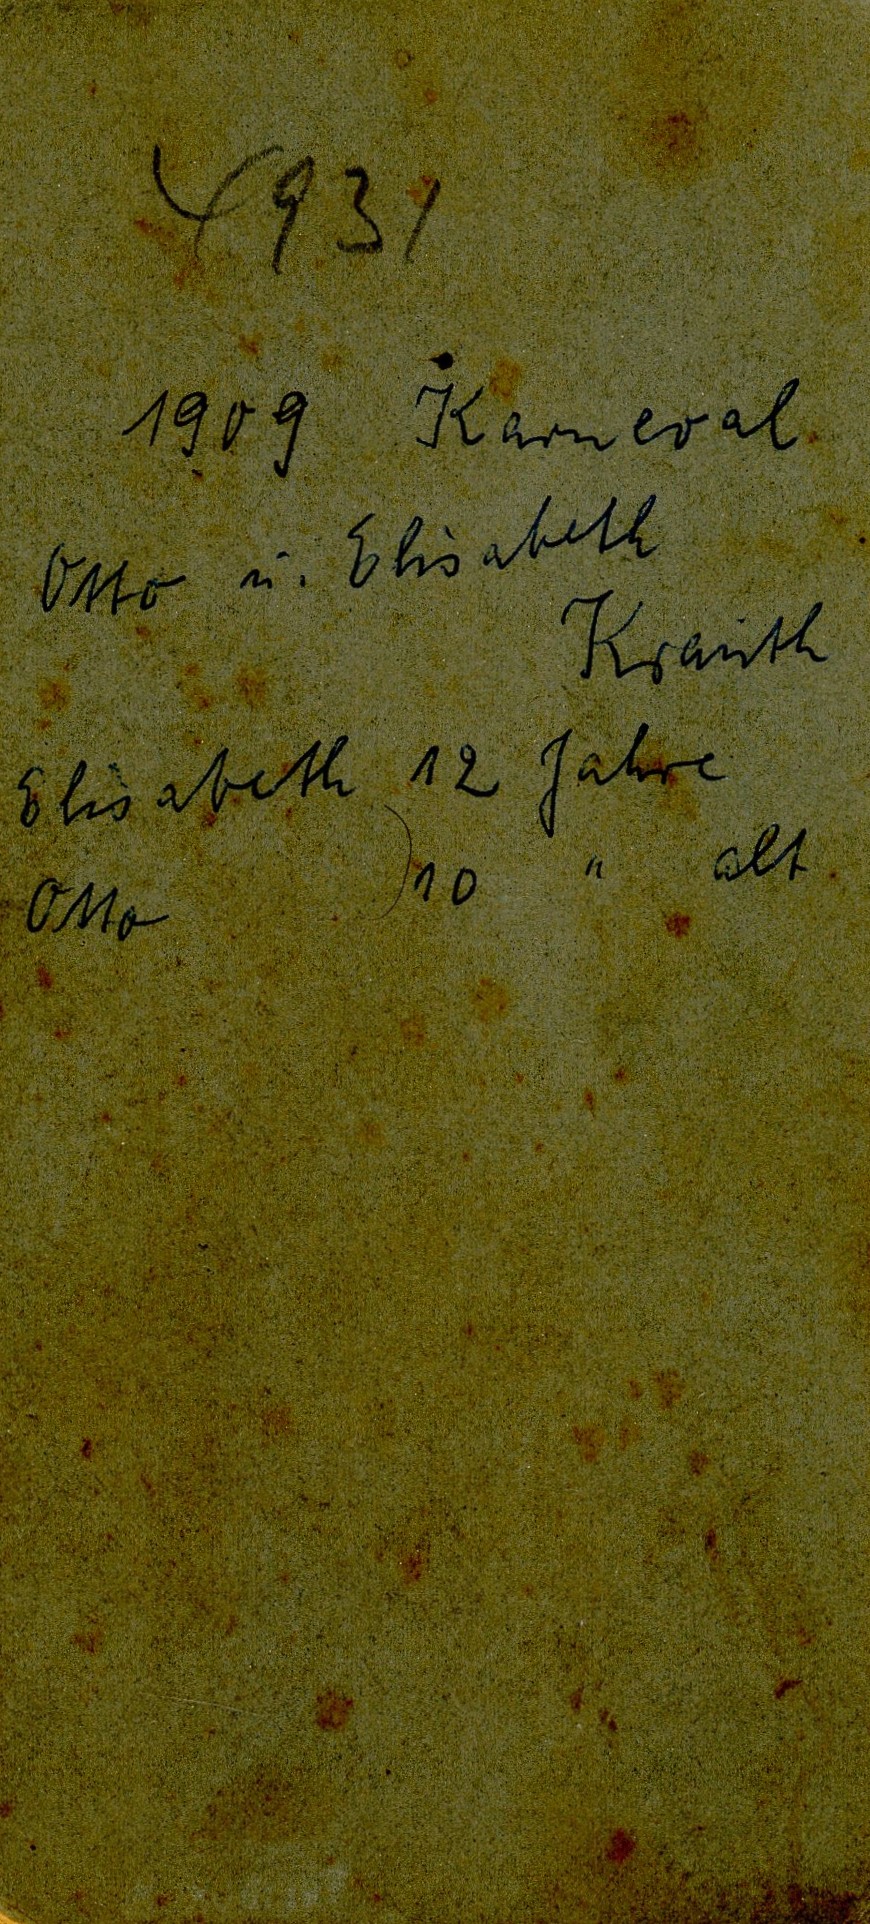 4931
1909 Karneval
Otto u. Elisabeth
Krauth
Elisabeth 12 Jahre
Otto ) 10 " alt